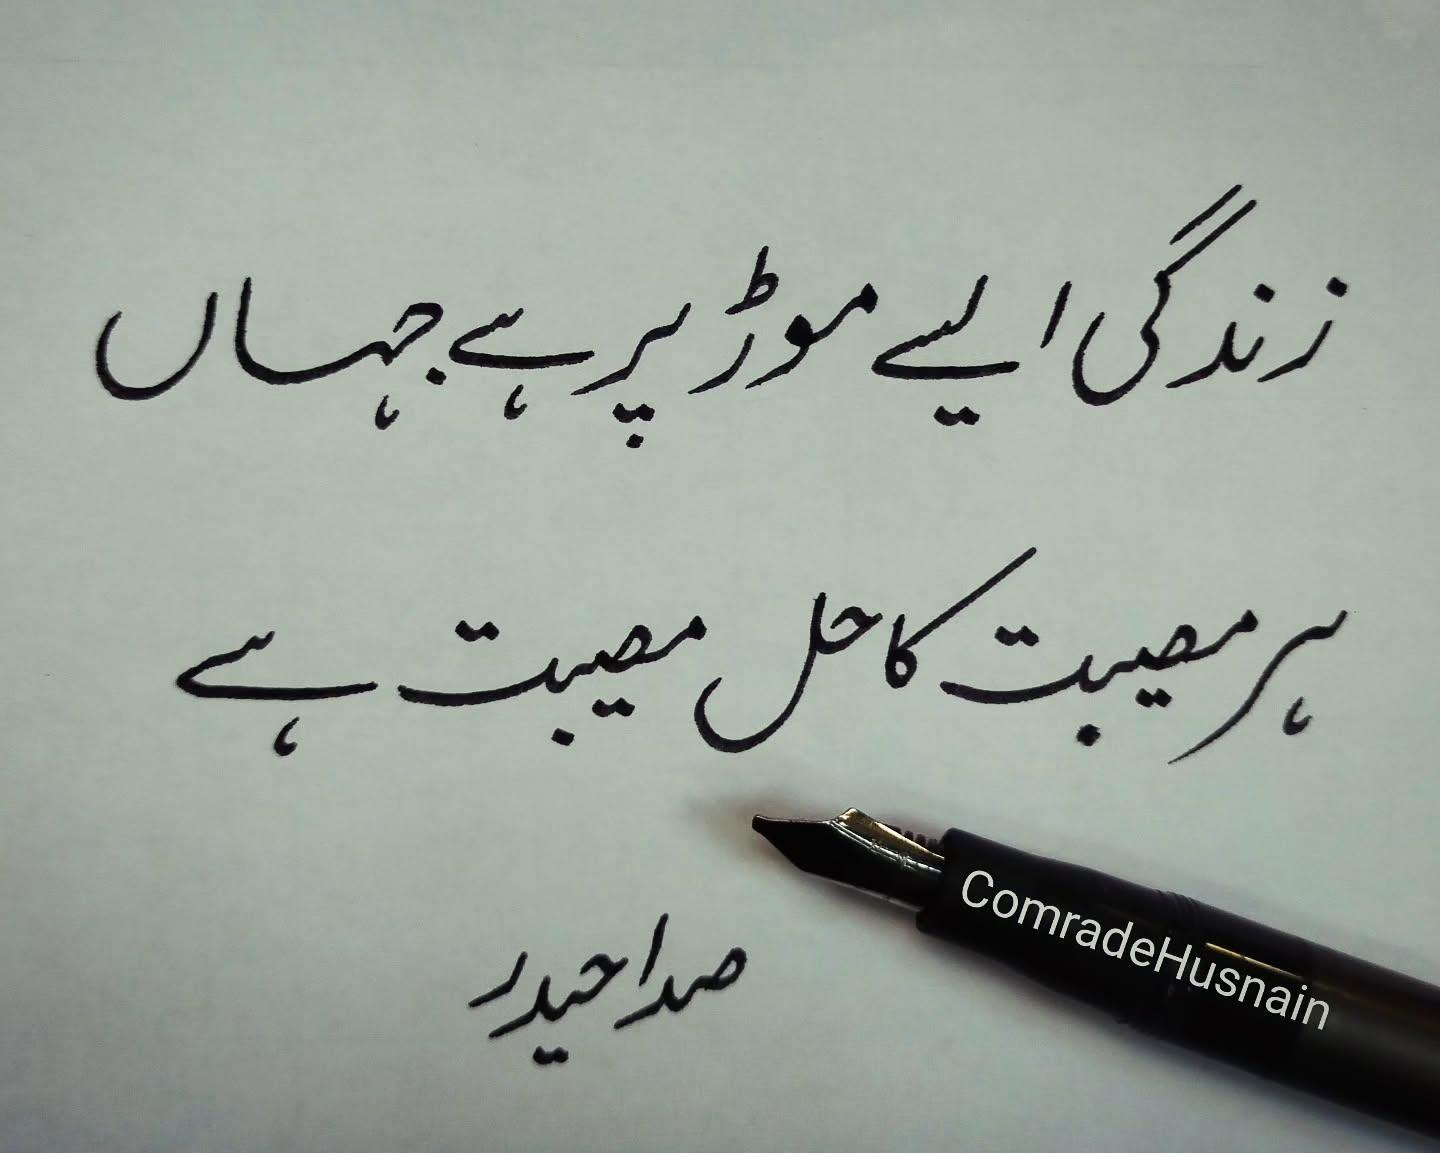 زندگی ایسے موڑ پر ہے جہاں
ہر مصیبت کا حل مصیبت ہے
صدا حیدر
ComradeHusnain